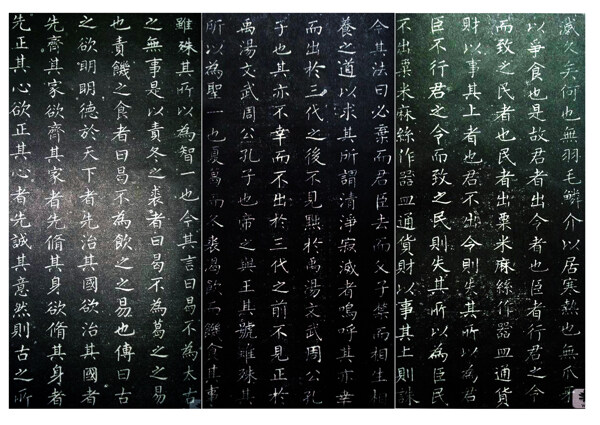 滅久矣何也無羽毛鱗介以居寒熱也無爪牙
以爭食也是故君者出令者也臣者行君之令
而致之民者也民者出粟米麻絲作器皿通貨
財以事其上者也君不出令則失其所以為君
臣不行君之令而致之民則失其所以為臣民
不出粟米麻絲作器皿通貨財以事其上則誅
今其法曰必棄而君臣去而父子禁而相生相
養之道以求其所謂清淨寂滅者嗚呼其亦幸
而出於三代之後不見黜於禹湯文武周公孔
子也其亦不幸而不出於三代之前不見正於
禹湯文武周公孔子也帝之與王其號雖殊其
所以為聖一也夏葛而冬裘渴飲而饑食其事
雖殊其所以為智一也今其言曰曷不為太古
之無事是以責冬之裘者曰曷不為葛之之易
也責饑之食者曰曷不為飲之之易也傳曰古
之欲明明德於天下者先治其國欲治其國者
先齊其家欲齊其家者先脩其身欲脩其身者
先正其心欲正其心者先誠其意然則古之所